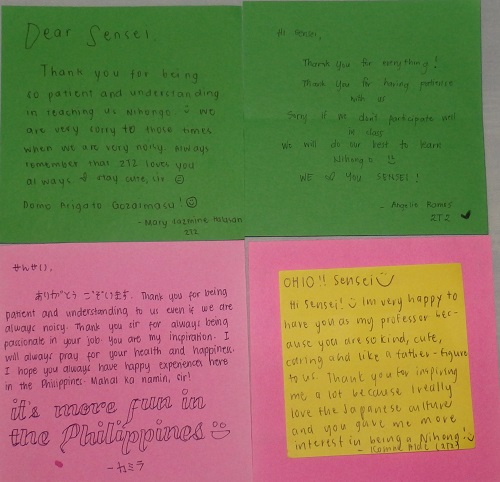 Dear Sensei,
Thank you for being
so patient and understanding
in teaching us Nihongo. We
are very sorry to those times
when we are very noisy. Always
remember that 2T2 loves you
always. Stay cute, sir
Domo Arigato Gozaimasu!
- Mary Jazmine
2T2
Hi Sensei,
Thank you for everything!
Thank you for having patience
with us
Sorry if we don't participate well
in class
We will do our best to learn
Nihongo
WE YOU SENSEI!
- Angelic Ramos
2T2
せんせい,
ありがとう ございます. Thank you for being
patient and understanding to us even if we are
always noisy. Thank you sir for always being
passionate in your job. You are my inspiration. I
will always pray for your health and happiness.
I hope you always have happy experiences here
in the Philippines. Mahal ka namin, sir!
it's more fun in
the Philippines
- カミラ
OHIO!! Sensei
Hi Sensei! Im very happy to
have you as my professor bec-
ause you are so kind, cute,
caring and like a father-figure
to us. Thank you for inspiring
me a lot because I really
love the Japanese culture
and you gave me more
interest in being a Nihong!
(2T2)